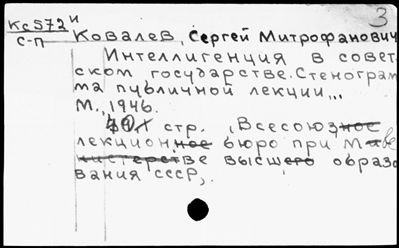 3
Кс572и
С-П
Ковалев, Сергей Митрофанович
Интеллигенция в совет-
ском государстве. Стенограм-
ма публичной лекции...
М., 1946.
стр. , Всесоюзное
лекционное бюро при М
ве высшего образо
вания СССР,.